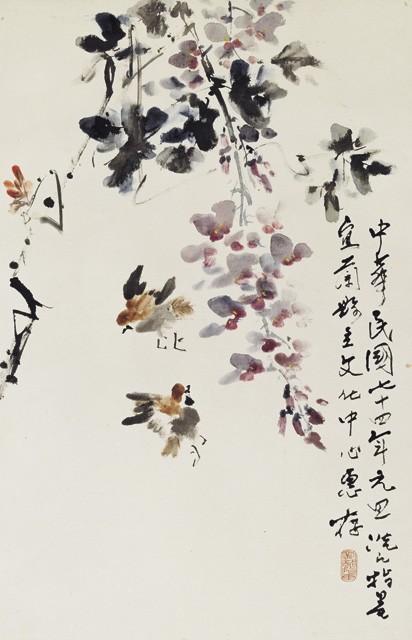 中華民國七十四年元旦 指墨
宜蘭縣立文化中心惠存